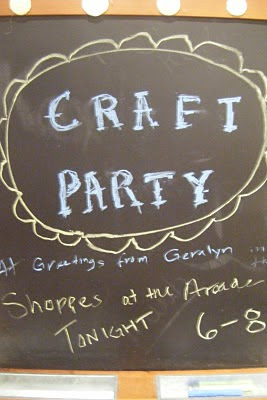 CRAFT
PARTY
At Greetings from Geralyn in the
Shoppes at the Arcade
TONIGHT 6-8